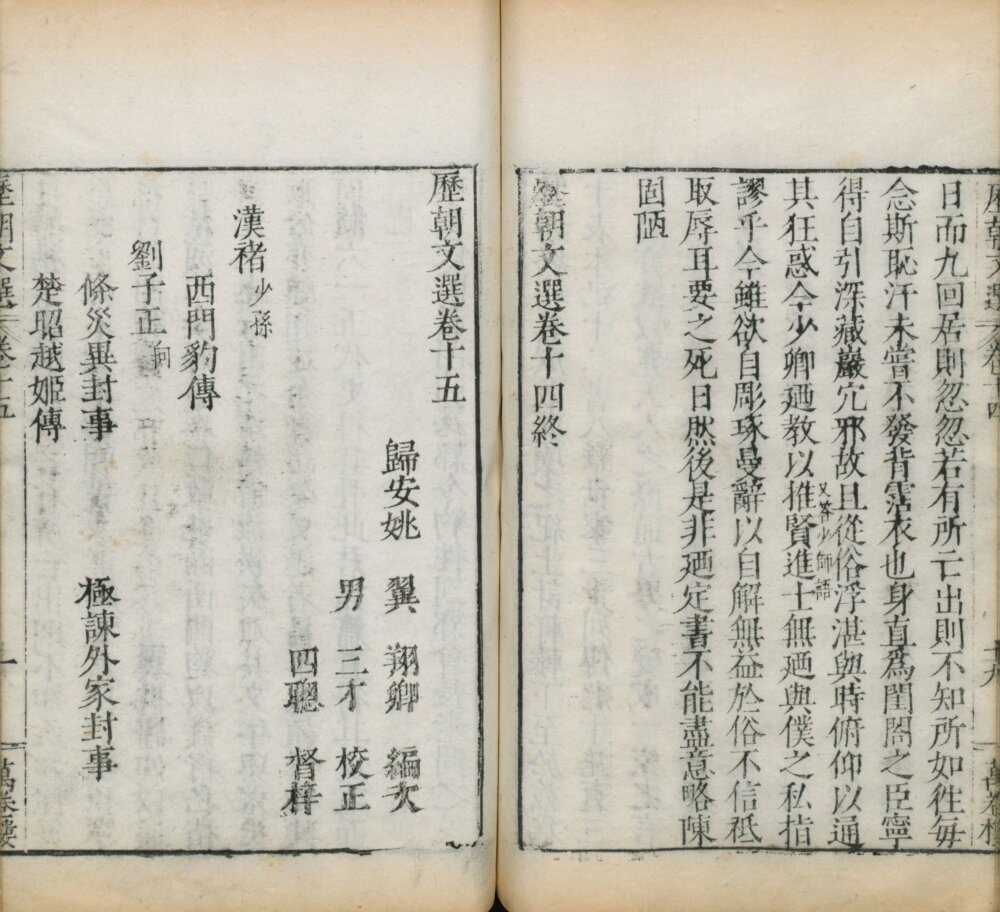 歷朝文選 卷十四
十九
日而九回居則忽忽若有所亡出則不知所如徃每
念斯恥汗未嘗不發背霑衣也身直為閨閤之臣寧
得自引深藏巖穴邪故且從俗浮湛與時俯仰以通
又答少師語
其狂惑今少卿廼教以推賢進士無廼與僕之私指
謬乎今雖欲自彫琢曼辭以自解無益於俗不信秪
取辱耳要之死日然後是非廼定書不能盡意略陳
固陋
歷朝文選卷十四終
歷朝文選卷十五
歸安姚 翼 翔卿 編次
男 三才 校正
四聰 督梓
漢褚少孫
西門豹傳
劉子正向
條災異封事 極諫外家封事
楚昭越姬傳
歷朝文選 卷十五
一
萬卷樓